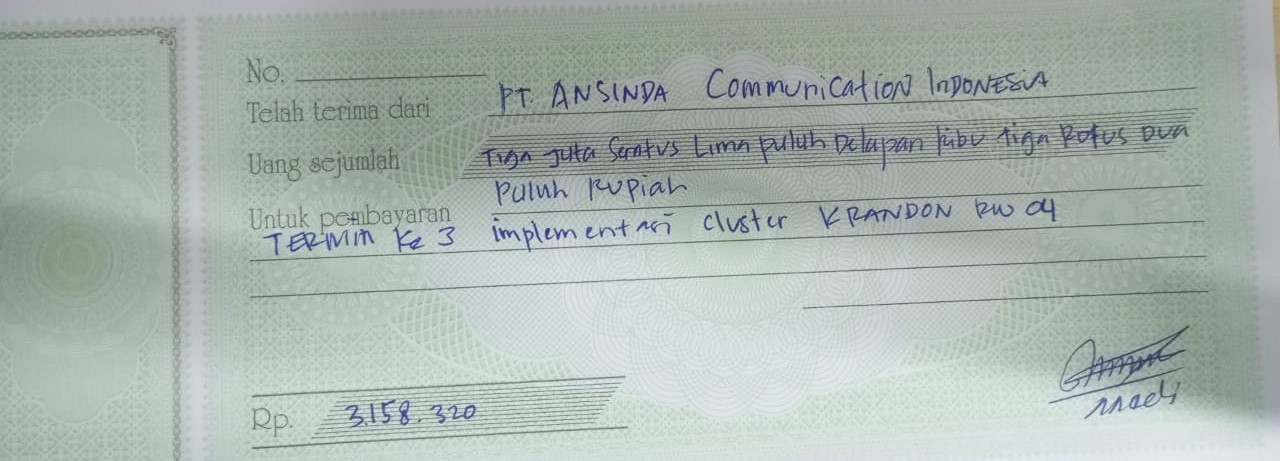 No.
Telah terima dari PT. ANSINDA Communication INDONESIA
Uang sejumlah Tiga juta Seratus Lima puluh Delapan Ribu tiga Ratus Dua
Puluh Rupiah
Untuk pembayaran
TERMIN Ke 3 implementasi cluster KRANDON RW 04
Rp. 3.158.320